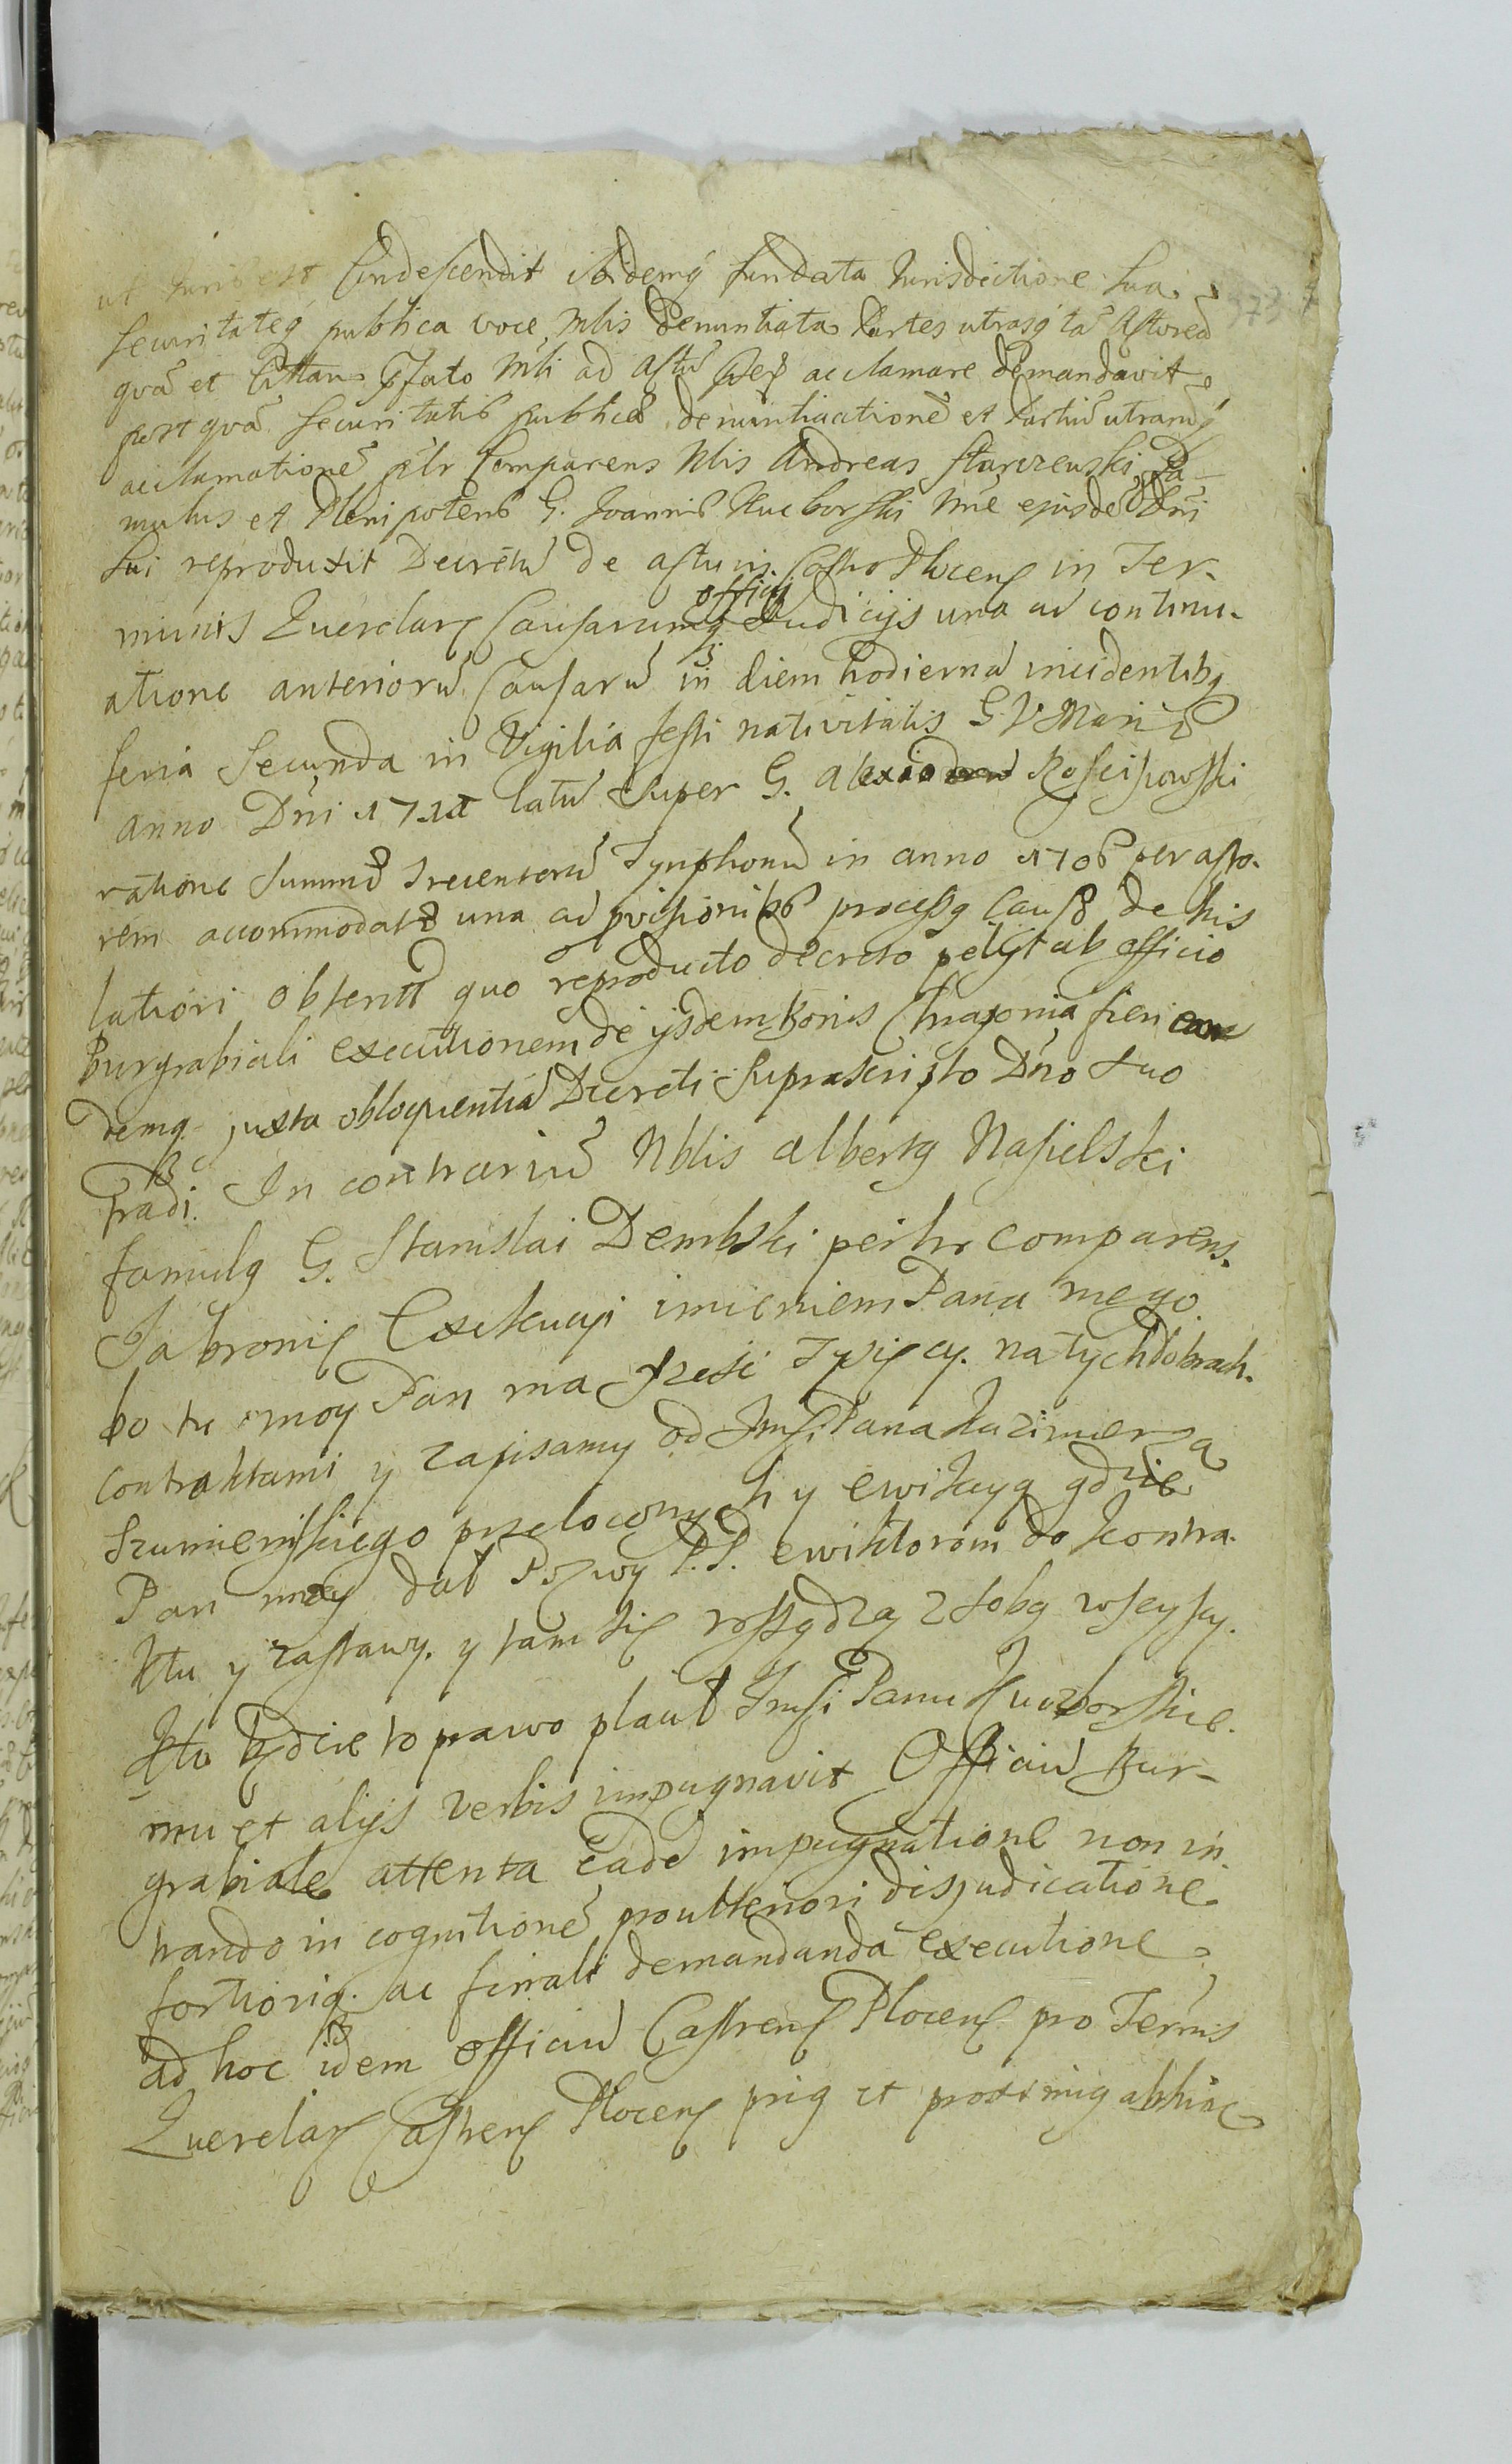 ut Juris est Condescendit ibidemq fundata Jurisdictione sua
securitateq publica voce Mlis denuntiata Partes utrasq tā Actoreā
quā et Cittam pfato Mli ad actū acclamare demandavit
post quā securitatis publicae denuntiationē et Partiū utrarūq
acclamationē psltr Comparens Nblis Andreas Starczewski Fa-
mulus et Plenipotens G. Joannis Kucborski nne ejusdē Dni
sui reproduxit Decretū de actu in Castro Plocens in Ter-
minis Querelarς Causarumq officij Judicijs una cū continu-
atione anteriorū Causarū in diem hodiernā incidentibq
feria secunda in Vigilia festi nativitatis G. V. Mariae
anno Dni 1711 latū super G. Rosciszowski
ratione summae trecentorū Tynphonū in anno 1706 per acto-
rem accommodatae una cū pvisionibs processq Causae de his
latiori obtentū quo reproducto decreto petyt ab officio
Burgrabiali executionem de ijsdem bonis Chraponia fieri ean
demq juxta obloquentiā Decreti suprascripto Dno suo
tradi. In contrariū Nblis Albertq Nasielski
famulq G. Stanislai Dembski psltr comparens.
Ja bronię Exekucyi imieniem Pana mego
bo tu moy Pan ma sześć Tysięcy. na tych dobrach.
contraktami y zapisamy od Jmsi Pana Kazimierza
Szumienskiego przeloconych y ewikcyą gdzie
Pan moy dał Pozwy P.P. ewiktorom do kontra-
ktu y zastawy. y tam się rossądzą z sobą wszyscy.
kto będzie to prawo płacił Jmsi Panu Kuczborskie-
mu et alijs verbis impugnavit Officiū Bur-
grabiale attenta eadē impugnatione non in-
trando in cognitionē pro ulteriori disjudicatione
fortioriq. ac finali demandanda executione
ad hoc idem officiū Castrens Plocens pro Termis
Querelarς Castrens Plocens priq et proximiq abhinc